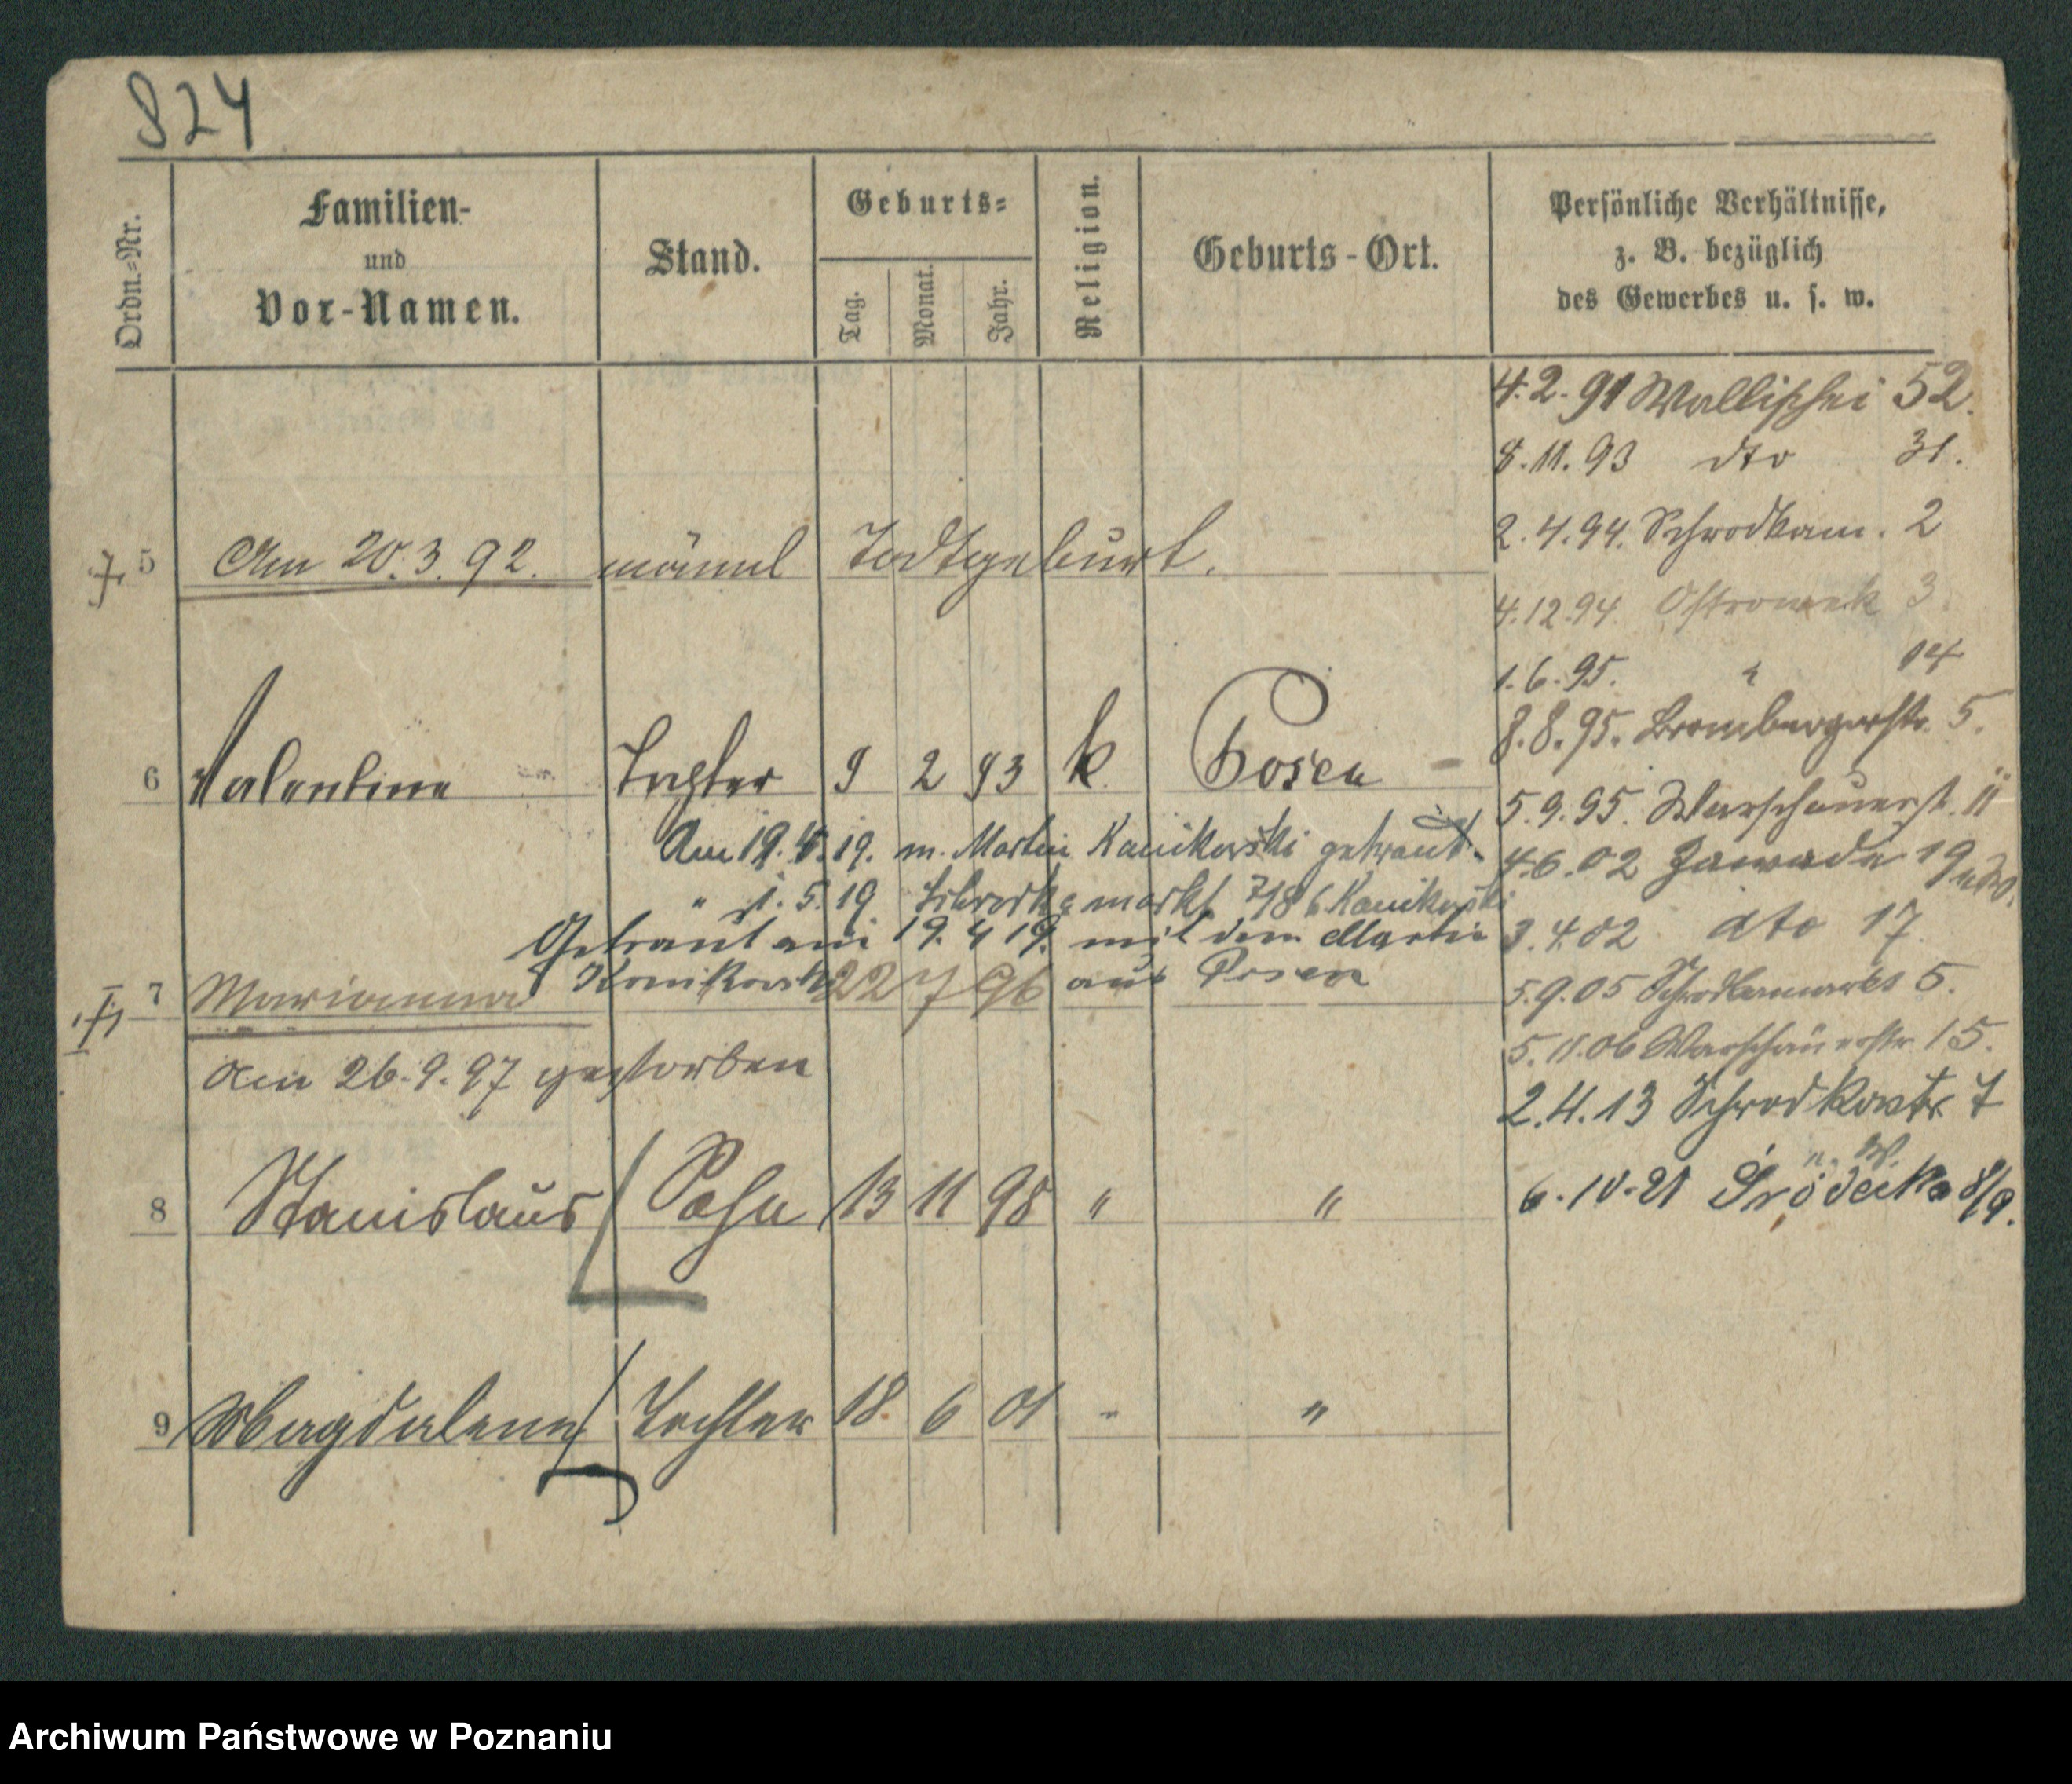 824
Ordn.-Nr.
Familien-
und
Vor-Namen.
Stand.
Geburts-
Tag.
Monat.
Jahr.
Religion.
Geburts-Ort.
Persönliche Verhältnisse,
z. B. bezüglich
des Gewerbes u. s. w.
4.2.91 Wallischei 52.
8.11.93 dto 31.
2.4.94. Schrodkam. 2
4.12.94. Ostrowek 3
1.6.95. " 14
8.8.95. Brombergerstr. 5.
5.9.95. Warschauerst. 11
4.6.02 Zawade 19
3.4.02 dto 17
5.9.05 Schrodkamarkt 5.
5.11.06 Warschauerstr 15.
2.4.13 Schrodkastr 7
6.10.21 Śródecka 8/9.
5 Am 20.3.92. männl Todtgeburt.
6 Valentine Tochter 9 2 93 k Posen
Am 19.4.19. m. Martin Kanikowski getraut.
" 1.5.19 Schrodkamarkt 7/8 b Kanikowski
Getraut am 19.4.19. mit dem Martin
Konikowski aus Posen
7 Marianna 22 7 96
am 26.9.97 gestorben
8 Stanislaus Sohn 13 11 98 " "
9 Magdalena Tochter 18 6 01 " "
Archiwum Państwowe w Poznaniu